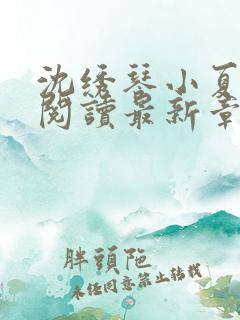 沈绣琴小夏
閱讀最新章
胖頭陁
未经同意禁止转载